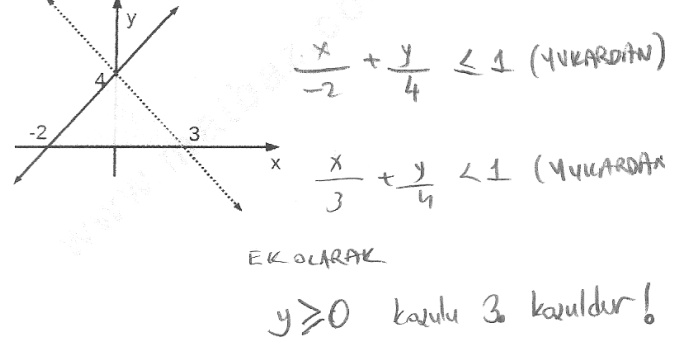 y
4
-2
3
x
x/-2 + y/4 ≤ 1 (YUKARDAN)
x/3 + y/4 < 1 (YUKARDAN
EK OLARAK
y ≥ 0 koşulu 3. koşuldur!